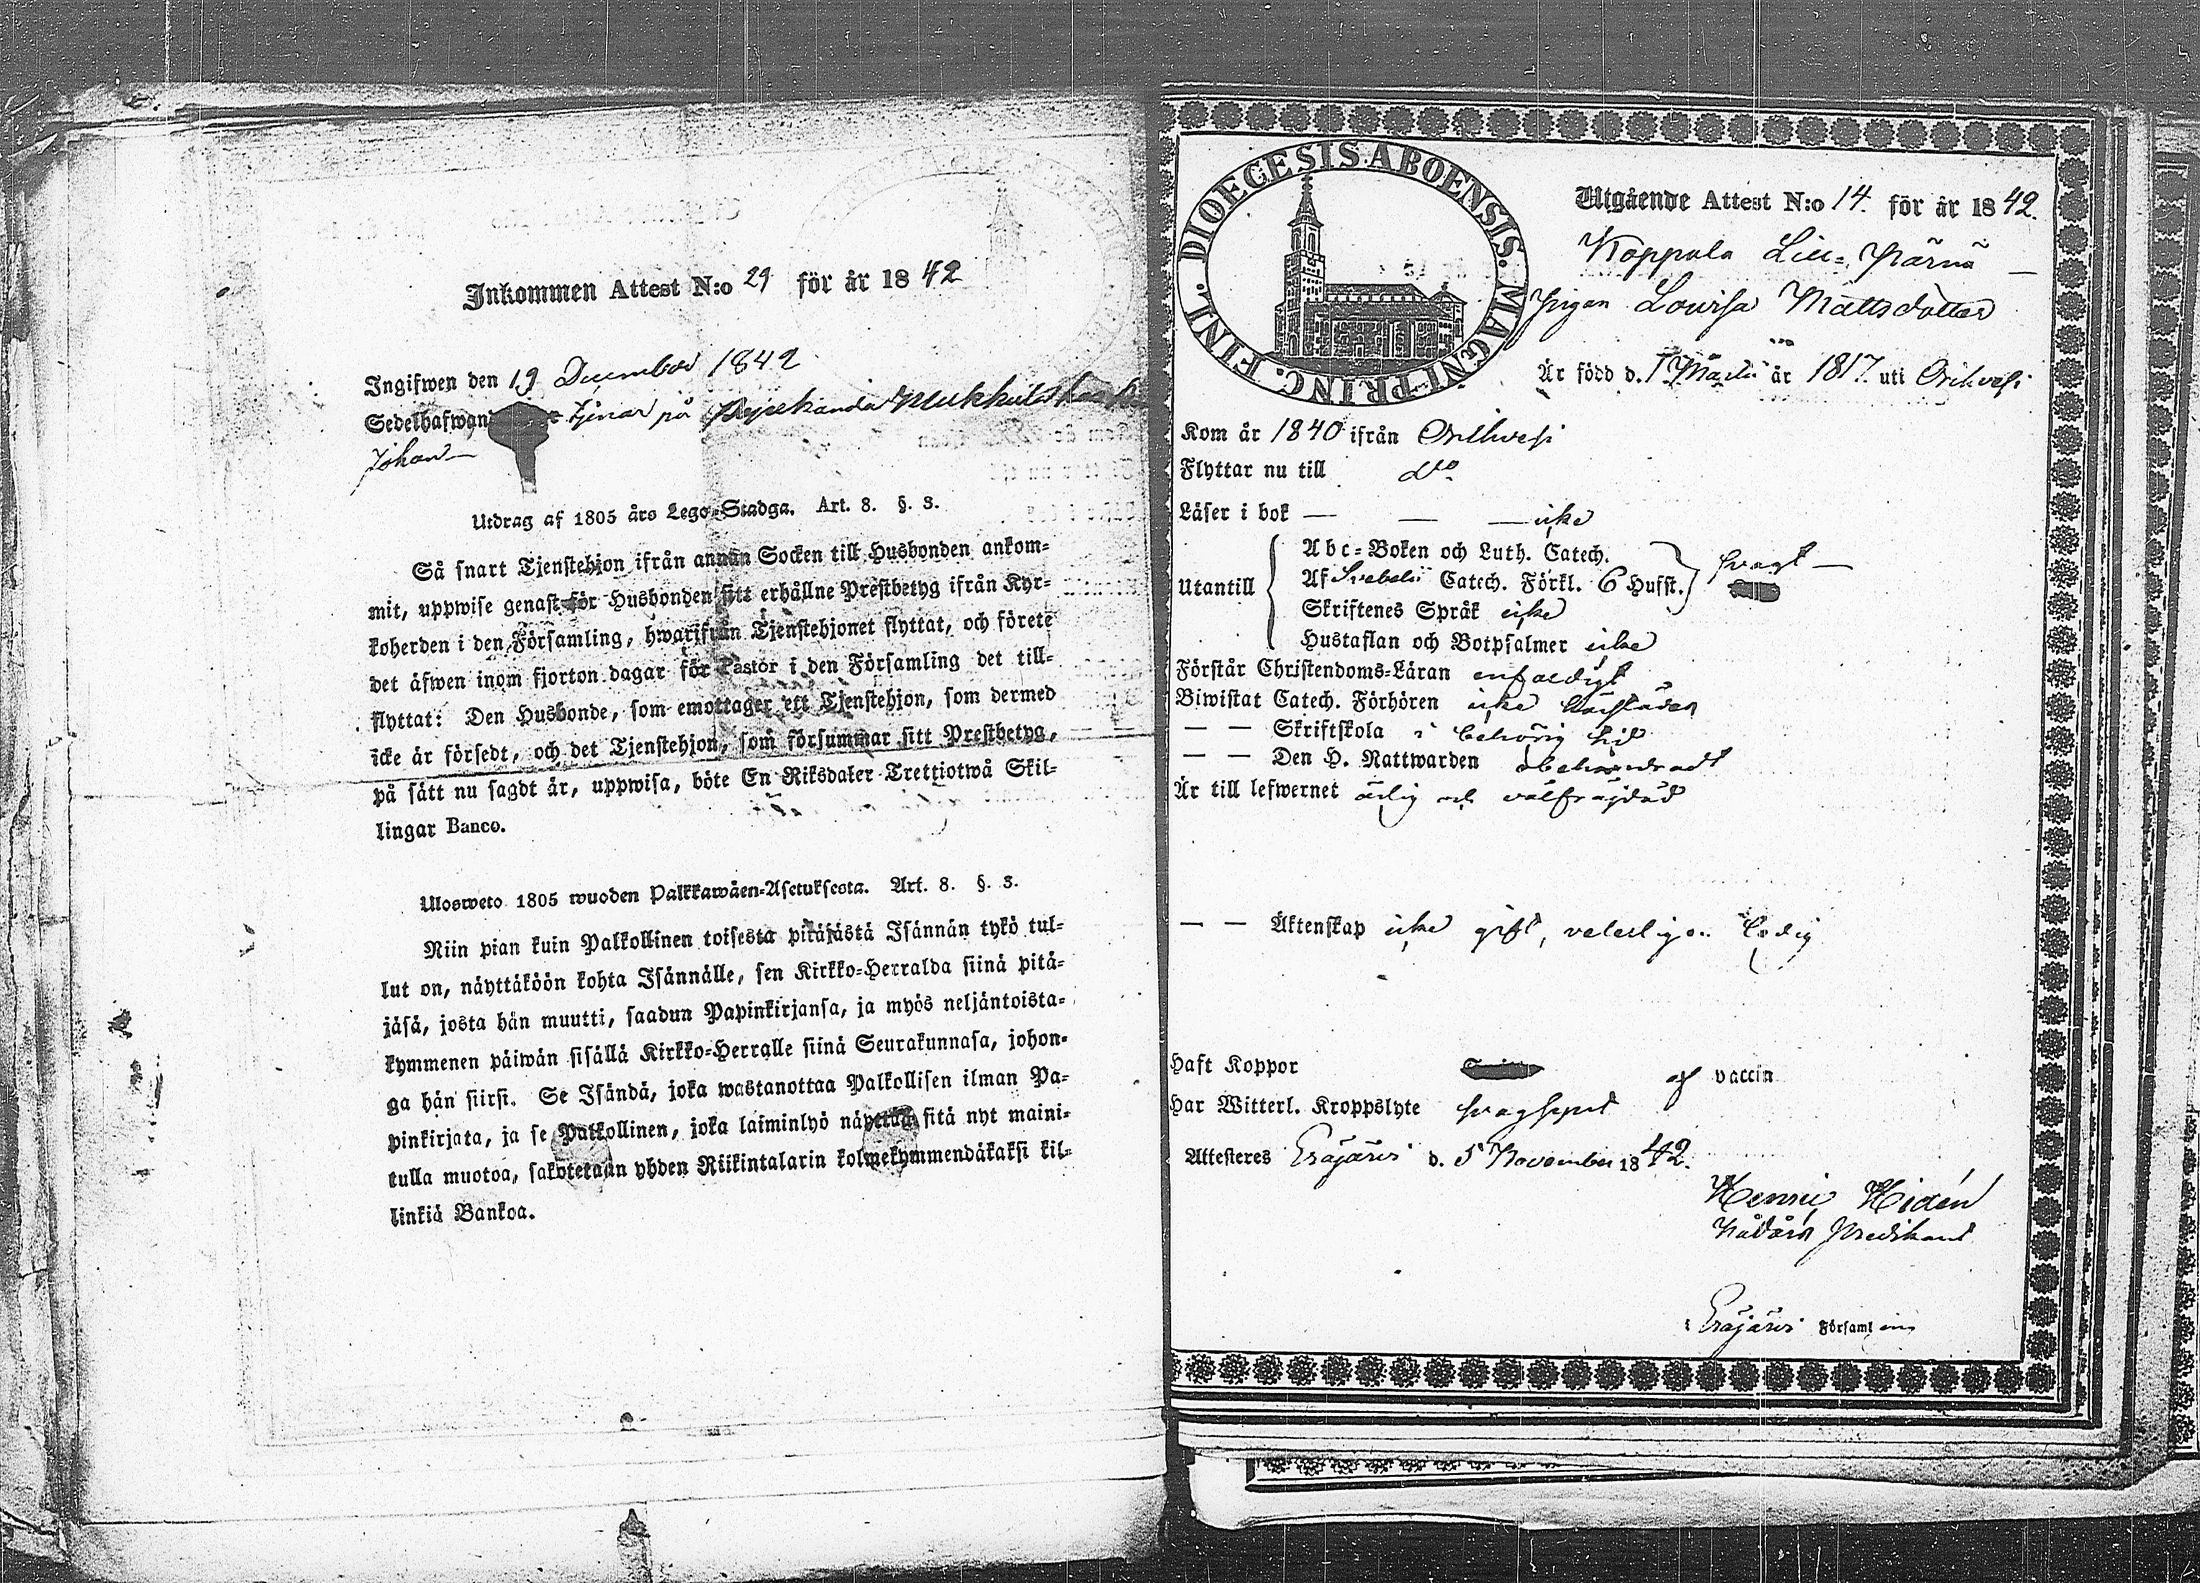 Inkommen Attest N:o 29 för år 1842
Ingifwen den 19 December 1842
Sedelhafwan tjenar på Mukkula
Johan —
Utdrag af 1805 års Lego-Stadga. Art. 8. §. 3.
Så snart Tjenstehjon ifrån annan Socken till Husbonden ankom-
mit, uppwise genast för Husbonden sitt erhållne Prestbetyg ifrån Kyr-
koherden i den Församling, hwarifrån Tjenstehjonet flyttat, och förete
det äfwen inom fjorton dagar för Pastor i den Församling det till-
flyttat: Den Husbonde, som emottager ett Tjenstehjon, som dermed
icke är försedt, och det Tjenstehjon, som försummar sitt Prestbetyg,
på sätt nu sagdt är, uppwisa, böte En Riksdaler Trettiotwå Skil-
lingar Banco.
Ulosweto 1805 wuoden Palkkawäen-Asetuksesta. Art. 8. §. 3.
Niin pian kuin Palkollinen toisesta pitäjästä Isännän tykö tul-
lut on, näyttäköön kohta Isännälle, sen Kirkko-Herralda siinä pitä-
jäsä, josta hän muutti, saadun Papinkirjansa, ja myös neljäntoista-
kymmenen päiwän sisällä Kirkko-Herralle siinä Seurakunnasa, johon-
ga hän siirsi. Se Isändä, joka wastanottaa Palkollisen ilman Pa-
pinkirjata, ja se Palkollinen, joka laiminlyö näyttää sitä nyt maini-
tulla muotoa, sakotetaan yhden Riikintalarin kolmekymmendäkaksi kil-
linkiä Bankoa.
DIOECESIS ABOENSIS. MAGNI PRINC. FINL.
Utgående Attest N:o 14. för år 1842.
Koppala Lill-Pärnä —
Pigan Lovisa Mattsdotter
Är född d. 1 Martii år 1817. uti Orihvesi
Kom år 1840 ifrån Orihvesi
Flyttar nu till do.
Läser i bok — — — icke
Utantill
Abc-Boken och Luth. Catech.
Af Svebelii Catech. Förkl. 6 Hufst. svagt —
Skriftenes Språk icke
Hustaflan och Botpsalmer icke
Förstår Christendoms-Läran enfaldigt
Biwistat Catech. Förhören icke härstädes
— — Skriftskola i behörig tid
— — Den H. Nattwarden obehindradt
Är till lefwernet ärlig och välfräjdad
— — Äktenskap icke gift, veterligen ledig
Haft Koppor af vaccin
Har Witterl. Kroppslyte svagsynt
Attesteres Eräjärvi d. 5 November 1842.
Henric Hidén
Nådårs Predikant
i Eräjärvi Församling